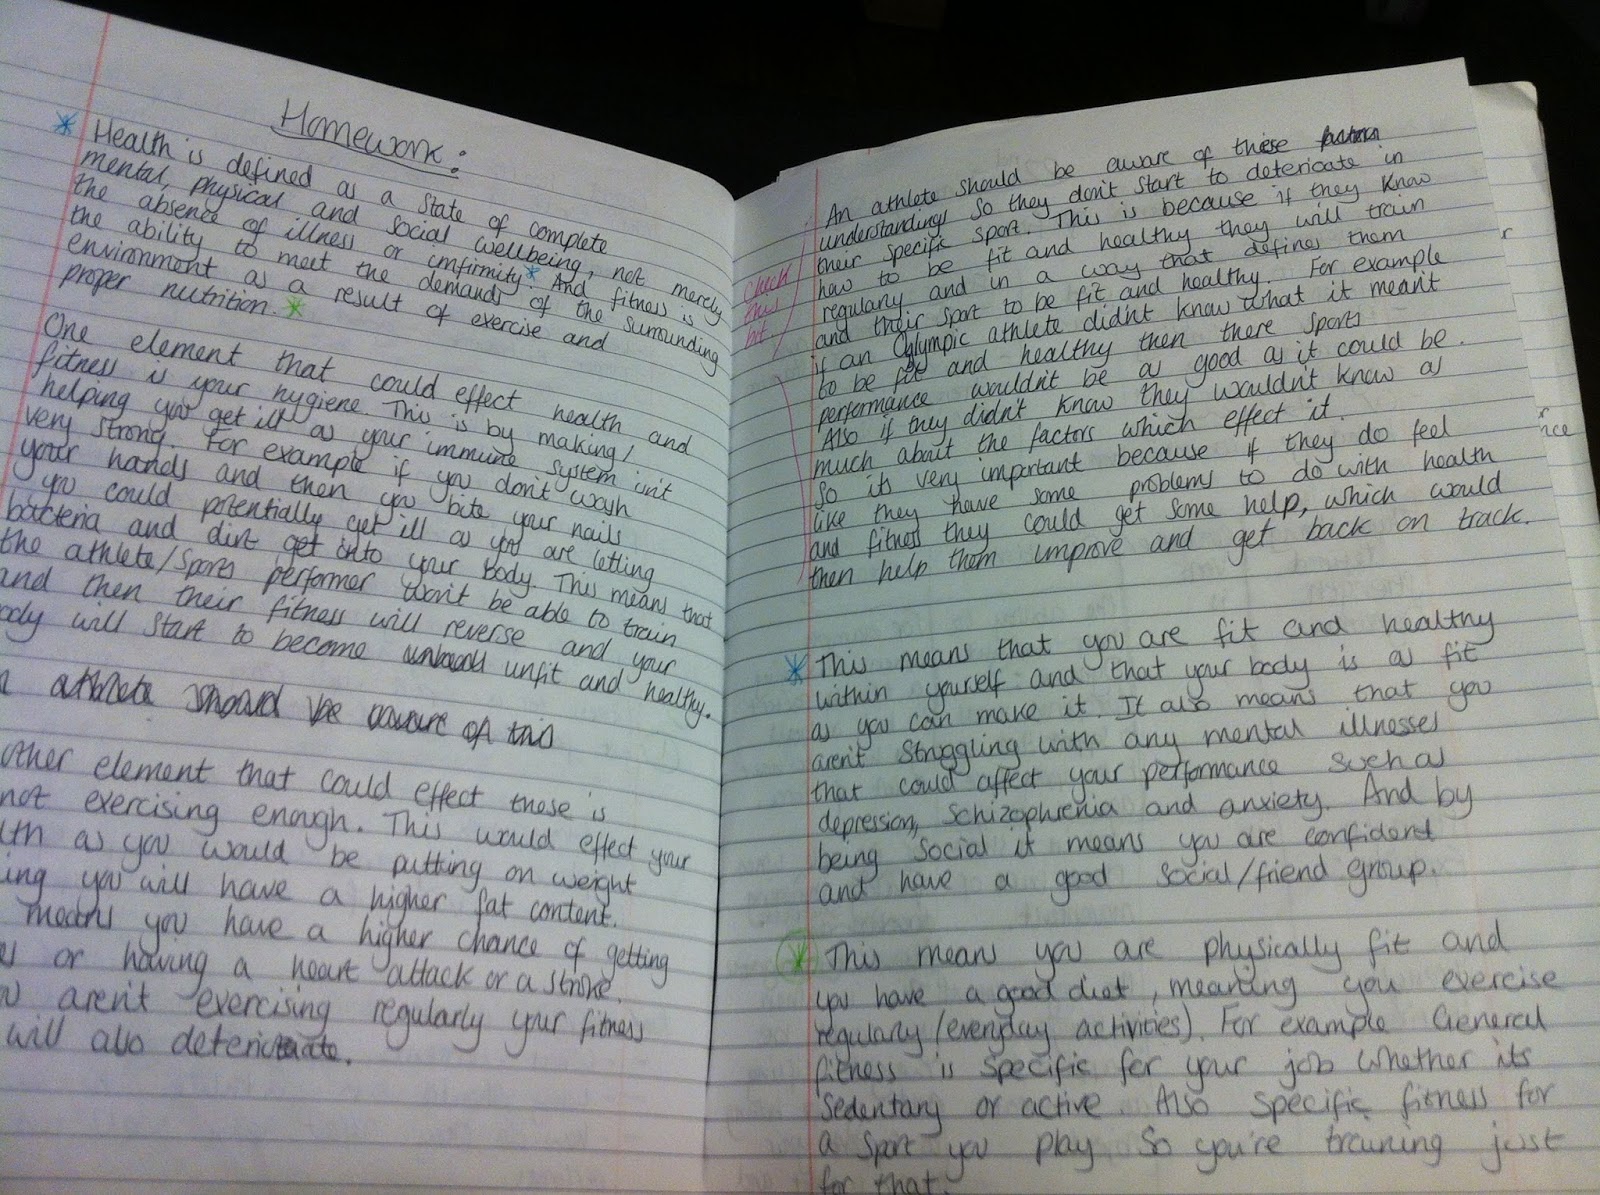 Homework:
* Health is defined as a state of complete
mental, physical and social wellbeing, not merely
the absence of illness or imfirmity.* And fitness is
the ability to meet the demands of the surrounding
environment as a result of exercise and
proper nutrition. *
One element that could effect health and
fitness is your hygiene. This is by making/
helping you get ill as your immune system isn't
very strong. For example if you don't wash
your hands and then you bite your nails
you could potentially get ill as you are letting
bacteria and dirt get into your body. This means that
the athlete/sports performer won't be able to train
and then their fitness will reverse and your
ody will start to become unfit and healthy.
athlete should be aware of this
other element that could effect these is
not exercising enough. This would effect your
lth as you would be putting on weight
ing you will have a higher fat content.
means you have a higher chance of getting
or having a heart attack or a stroke.
aren't exercising regularly your fitness
will also deteriorate.
Check
this
bit
An athlete should be aware of these
understandings so they don't start to detericate in
their specific sport. This is because if they know
how to be fit and healthy they will train
regulary and in a way that defines them
and their sport to be fit and healthy. For example
if an Oylympic athlete didn't know what it meant
to be fit and healthy then there sports
performance wouldn't be as good as it could be.
Also if they didn't know they wouldn't know as
much about the factors which effect it.
So its very important because if they do feel
like they have some problems to do with health
and fitness they could get some help, which would
then help them improve and get back on track.
* This means that you are fit and healthy
within yourself and that your body is as fit
as you can make it. It also means that you
aren't struggling with any mental illnesses
that could affect your performance such as
depression, schizophrenia and anxiety. And by
being social it means you are confident
and have a good social/friend group.
* This means you are physically fit and
you have a good diet, meaning you exercise
regulary (everyday activities). For example General
fitness is specific for your job whether its
sedentary or active. Also specific fitness for
a sport you play so you're training just
for that.
r
r
ice